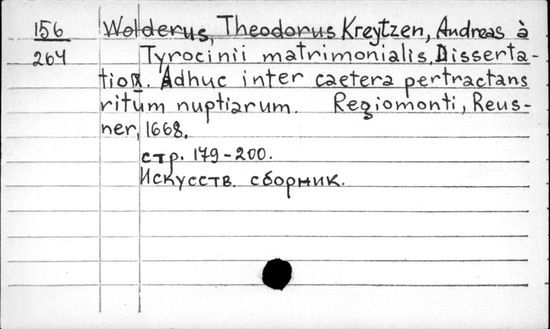 156 Wolderus, Theodorus Kreytzen, Andreas à
264 Tyrocinii matrimonialis, Disserta-
tio X. Adhuc inter caetera pertractans
ritum nuptiarum. Regiomonti, Reus-
ner, 1668.
стр. 179-200.
Искусств. сборник.